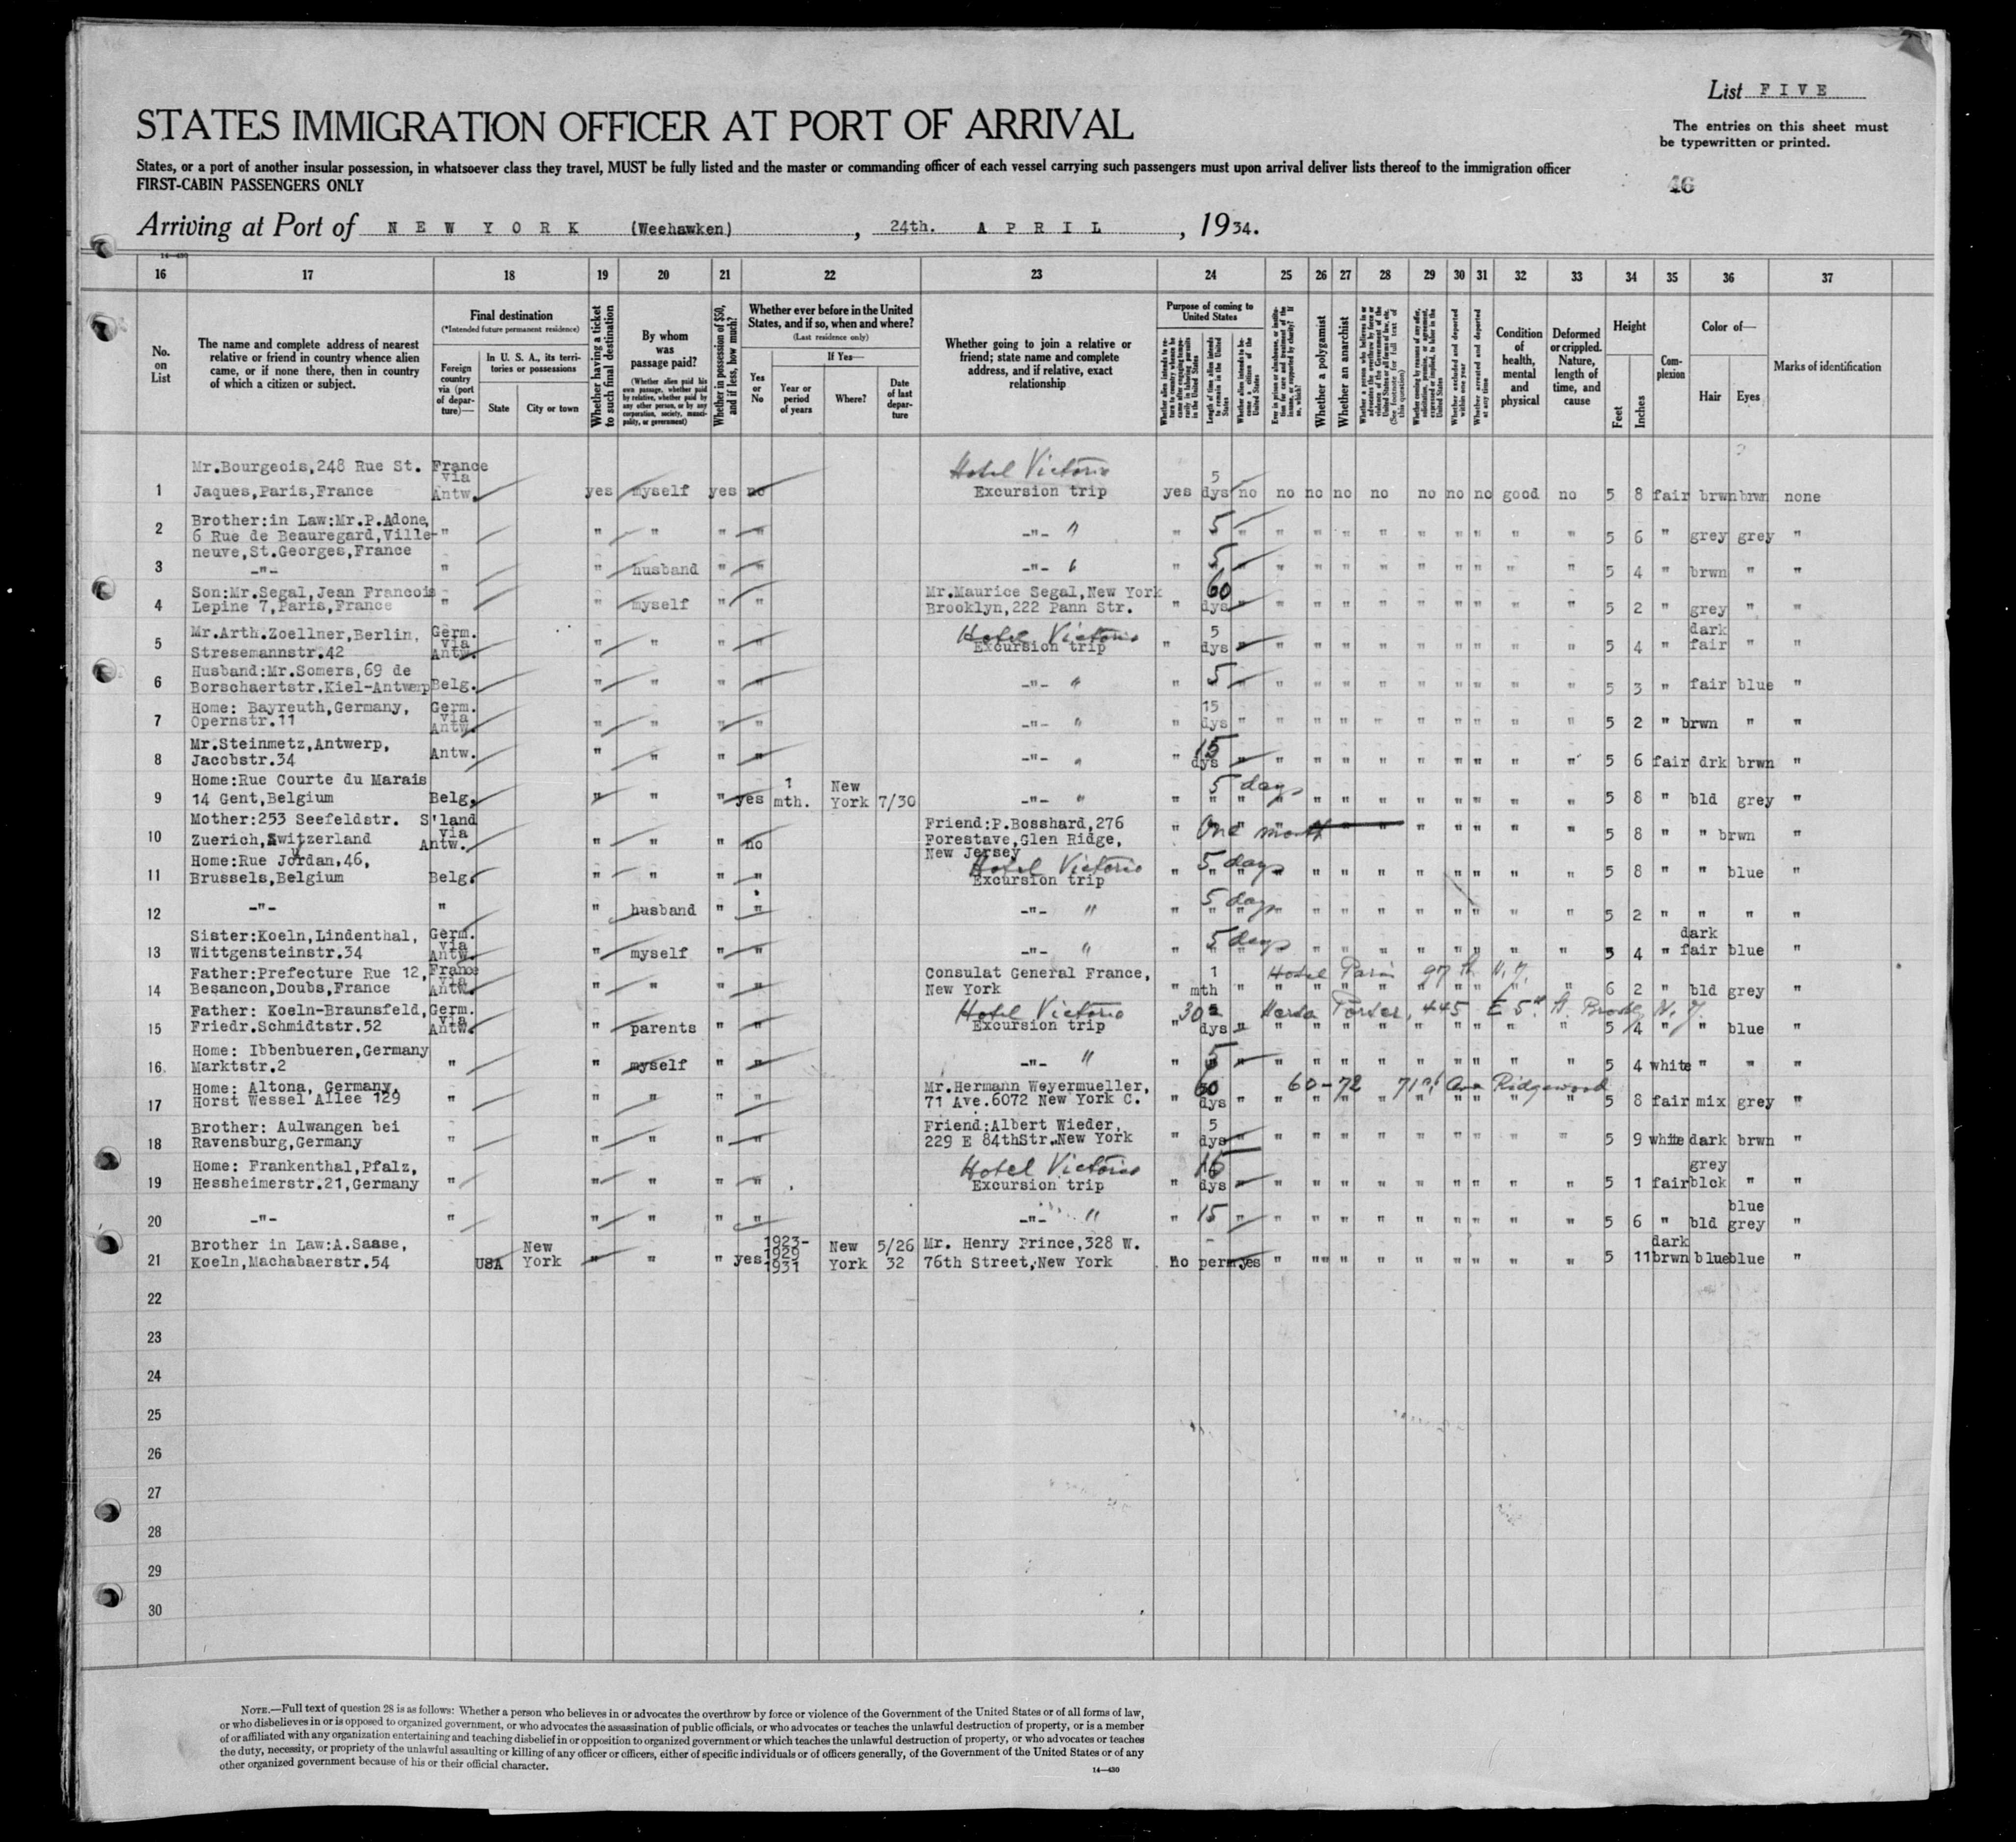 List FIVE
STATES IMMIGRATION OFFICER AT PORT OF ARRIVAL
The entries on this sheet must
be typewritten or printed.
States, or a port of another insular possession, in whatsoever class they travel, MUST be fully listed and the master or commanding officer of each vessel carrying such passengers must upon arrival deliver lists thereof to the immigration officer
FIRST-CABIN PASSENGERS ONLY
46
Arriving at Port of NEW YORK (Weehawken), 24th. APRIL, 1934.
14-430
16 17 18 19 20 21 22 23 24 25 26 27 28 29 30 31 32 33 34 35 36 37
No.
on
List
The name and complete address of nearest
relative or friend in country whence alien
came, or if none there, then in country
of which a citizen or subject.
Final destination
(*Intended future permanent residence)
Foreign
country
via (port
of depar-
ture)—
In U. S. A., its terri-
tories or possessions
State
City or town
Whether having a ticket
to such final destination
By whom
was
passage paid?
(Whether alien paid his
own passage, whether paid
by relative, whether paid by
any other person, or by any
corporation, society, munici-
pality, or government)
Whether in possession of $50,
and if less, how much?
Whether ever before in the United
States, and if so, when and where?
(Last residence only)
Yes
or
No
If Yes—
Year or
period
of years
Where?
Date
of last
depar-
ture
Whether going to join a relative or
friend; state name and complete
address, and if relative, exact
relationship
Purpose of coming to
United States
Length of time alien intends
to remain in the United
States
Whether alien intends to be-
come a citizen of the
United States
Whether a polygamist
Whether an anarchist
Whether excluded and deported
within one year
Whether arrested and deported
at any time
Condition
of
health,
mental
and
physical
Deformed
or crippled.
Nature,
length of
time, and
cause
Height
Feet
Inches
Com-
plexion
Color of—
Hair
Eyes
Marks of identification
Mr.Bourgeois,248 Rue St. France Hotel Victoria
via 5
1 Jaques,Paris,France Antw. yes myself yes no Excursion trip yes dys no no no no no no no no good no 5 8 fair brwn brwn none
Brother:in Law:Mr.P.Adone,
2 6 Rue de Beauregard,Ville- " " " " " -"- " " 5 " " " " " " " " " " 5 6 " grey grey "
neuve,St.Georges,France
3 -"- " " husband " " -"- " " 5 " " " " " " " " " " 5 4 " brwn " "
Son:Mr.Segal,Jean Francois Mr.Maurice Segal,New York 60
4 Lepine 7,Paris,France " " myself " " Brooklyn,222 Pann Str. " dys " " " " " " " " " " 5 2 " grey " "
Mr.Arth.Zoellner,Berlin, Germ. Hotel Victoria 5 dark
via
5 Stresemannstr.42 Antw. " " " " Excursion trip " dys " " " " " " " " " " 5 4 " fair " "
Husband:Mr.Somers,69 de
6 Borschaertstr.Kiel-Antwerp Belg. " " " " -"- " " 5 " " " " " " " " " " 5 3 " fair blue "
Home: Bayreuth,Germany, Germ. 15
via
7 Opernstr.11 Antw. " " " " -"- " " dys " " " " " " " " " " 5 2 " brwn " "
Mr.Steinmetz,Antwerp, Antw. 15
8 Jacobstr.34 " " " " -"- " " dys " " " " " " " " " " 5 6 fair drk brwn "
Home:Rue Courte du Marais 1 New 5 days
9 14 Gent,Belgium Belg. " " " yes mth. York 7/30 -"- " " " " " " " " " " " " " 5 8 " bld grey "
Mother:253 Seefeldstr. S'land Friend:P.Bosshard,276
via
10 Zuerich,Switzerland Antw. " " " no Forestave,Glen Ridge, " One month " " " " " 5 8 " " brwn "
New Jersey
Home:Rue Jordan,46, Hotel Victoria 5 days
11 Brussels,Belgium Belg. " " " " Excursion trip " " " " " " " " " " " " 5 8 " " blue "
12 -"- " " husband " " -"- " " 5 days " " " " " " " " " 5 2 " " " "
Sister:Koeln,Lindenthal, Germ. 5 days dark
via
13 Wittgensteinstr.34 Antw. " myself " " -"- " " " " " " " " " " " " 5 4 " fair blue "
Father:Prefecture Rue 12, France Consulat General France, 1 Hotel Paris 97 St. N.Y.
via
14 Besancon,Doubs,France Antw. " " " " New York " mth " " " " " " " " " " 6 2 " bld grey "
Father: Koeln-Braunsfeld, Germ. Hotel Victoria 30 Herta Porter, 445 E 5" St. Brookly N.Y.
via
15 Friedr.Schmidtstr.52 Antw. " parents " " Excursion trip " dys " " " " " " " " " " 5 4 " " blue "
Home: Ibbenbueren,Germany
16 Marktstr.2 " " myself " " -"- " " 5 " " " " " " " " " " 5 4 white " " "
Home: Altona, Germany, Mr.Hermann Weyermueller, 60 60-72 71st Ave Ridgewood
17 Horst Wessel Allee 129 " " " " " 71 Ave.6072 New York C. " dys " " " " " " " " " " 5 8 fair mix grey "
Brother: Aulwangen bei Friend:Albert Wieder, 5
18 Ravensburg,Germany " " " " " 229 E 84thStr.New York " dys " " " " " " " " " " 5 9 white dark brwn "
Home: Frankenthal,Pfalz, Hotel Victoria 15 grey
19 Hessheimerstr.21,Germany " " " " " Excursion trip " dys " " " " " " " " " " 5 1 fair blck " "
blue
20 -"- " " " " " -"- " " 15 " " " " " " " " " " 5 6 " bld grey "
Brother in Law:A.Saase, New 1923- New 5/26 Mr. Henry Prince,328 W. dark
1929
21 Koeln,Machabaerstr.54 USA York " " " yes 1931 York 32 76th Street,New York no perm yes " " " " " " " " " 5 11 brwn blue blue "
22
23
24
25
26
27
28
29
30
NOTE.—Full text of question 28 is as follows: Whether a person who believes in or advocates the overthrow by force or violence of the Government of the United States or of all forms of law,
or who disbelieves in or is opposed to organized government, or who advocates the assassination of public officials, or who advocates or teaches the unlawful destruction of property, or is a member
of or affiliated with any organization entertaining and teaching disbelief in or opposition to organized government or which teaches the unlawful destruction of property, or who advocates or teaches
the duty, necessity, or propriety of the unlawful assaulting or killing of any officer or officers, either of specific individuals or of officers generally, of the Government of the United States or of any
other organized government because of his or their official character.
14—430